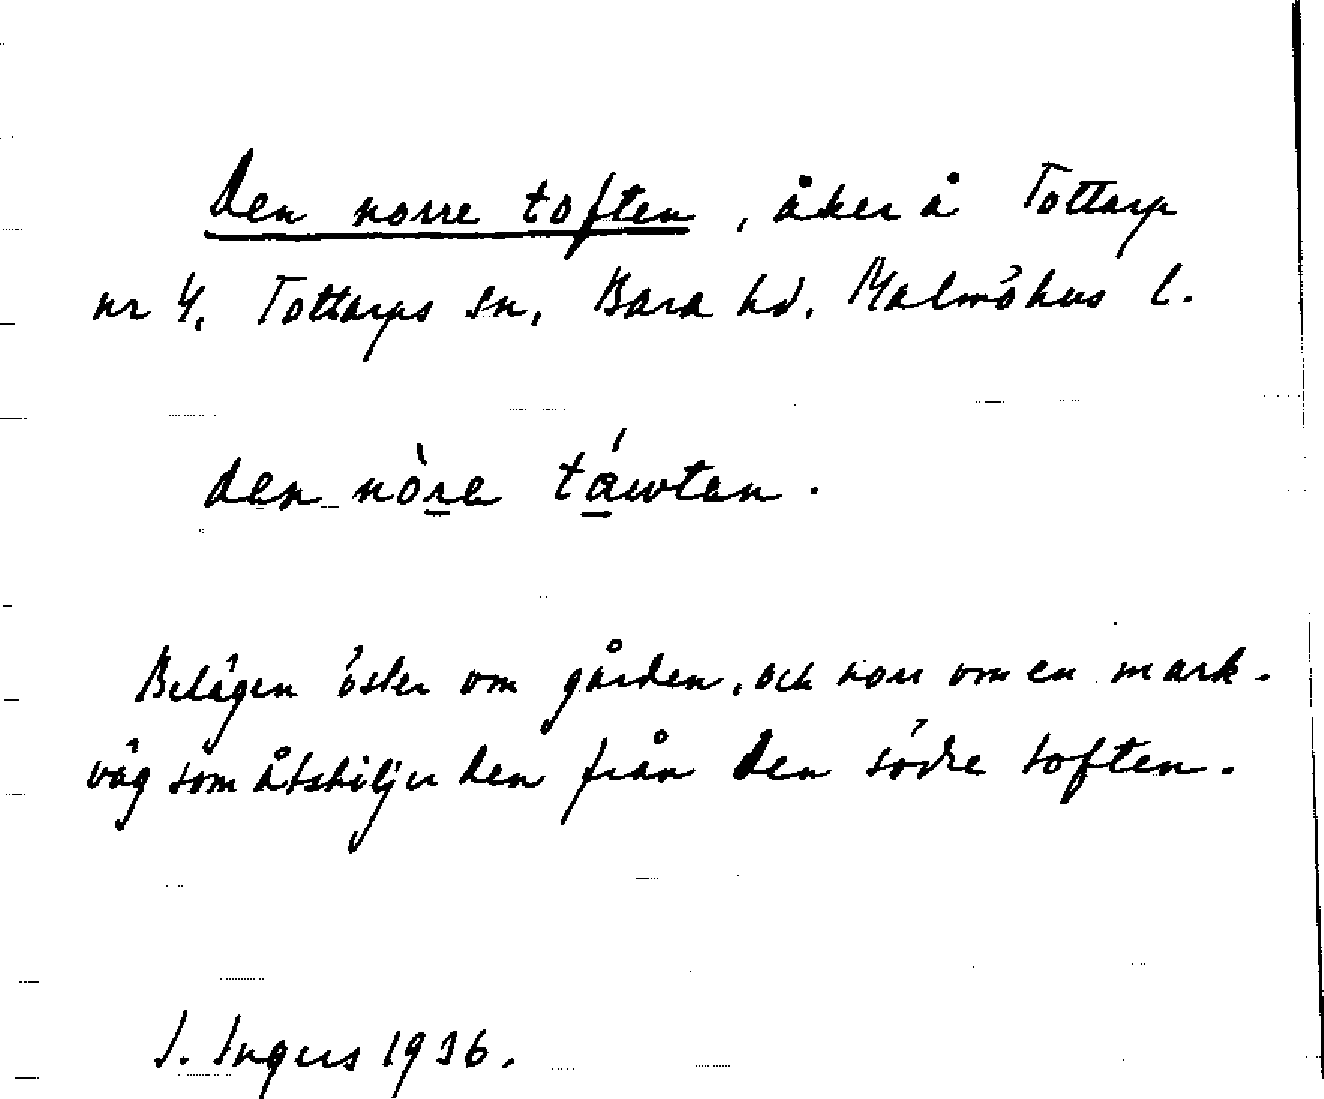 Den norre toften, åker å Tottarp
nr 4, Tottarps sn, Bara hd. Malmöhus l.
den nòre táwten.
Belägen öster om gården, och norr om en mark-
väg som åtskiljer den från Den södre toften.
I. Ingers 1936.